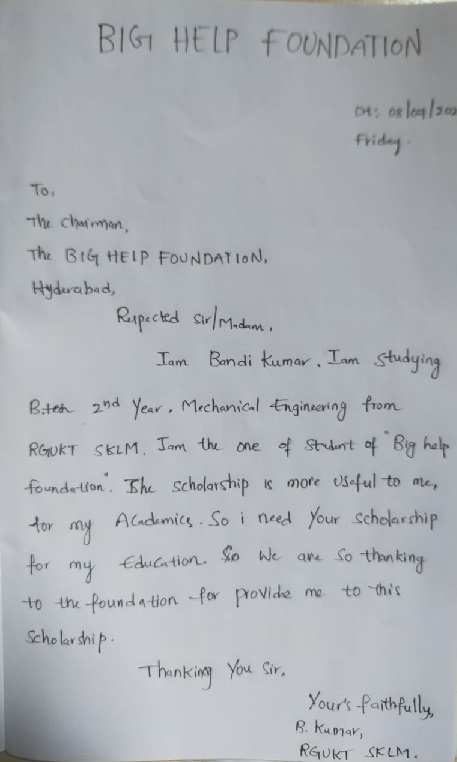 BIG HELP FOUNDATION
Dt: 08/04/202
Friday.
To,
The Chairman,
The BIG HELP FOUNDATION,
Hyderabad,
Respected Sir/Madam,
Iam Bandi Kumar. Iam studying
B.tech 2nd Year. Mechanical Engineering from
RGUKT SKLM. Iam the one of student of "Big help
foundation". The scholarship is more useful to me,
for my Academics. So i need your scholarship
for my Education. So We are so thanking
to the foundation for provide me to this
scholarship.
Thanking You Sir.
Your's faithfully,
B. Kumar,
RGUKT SKLM.